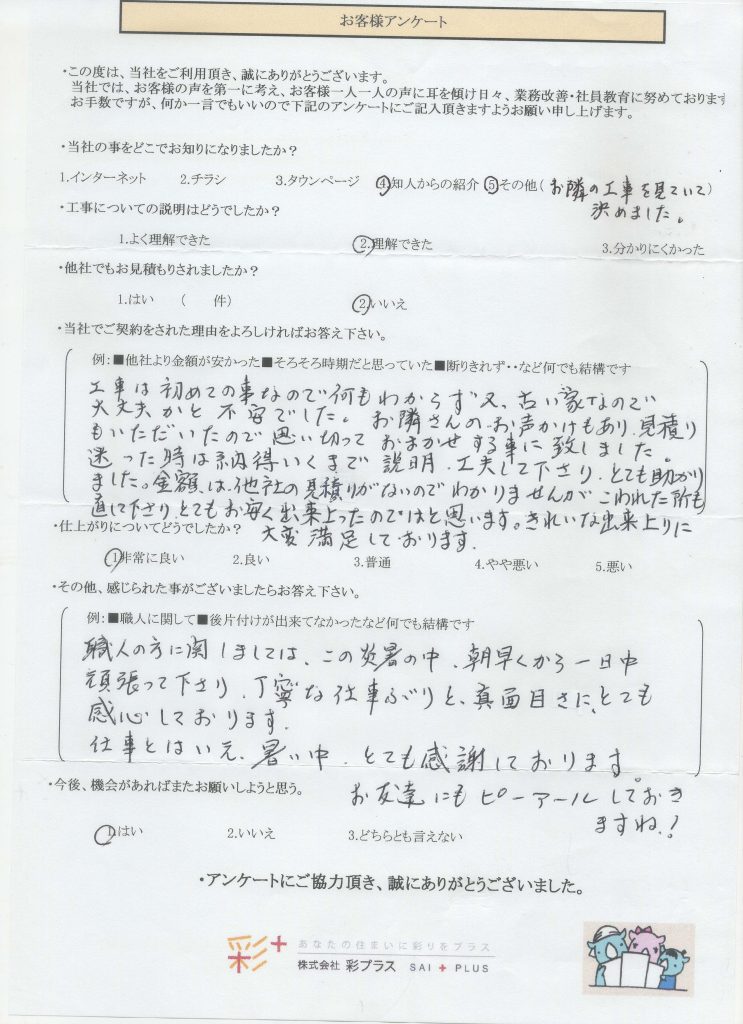 お客様アンケート
・この度は、当社をご利用頂き、誠にありがとうございます。
当社では、お客様の声を第一に考え、お客様一人一人の声に耳を傾け日々、業務改善・社員教育に努めております
お手数ですが、何か一言でもいいので下記のアンケートにご記入頂きますようお願い申し上げます。
・当社の事をどこでお知りになりましたか？
1.インターネット 2.チラシ 3.タウンページ ④知人からの紹介 ⑤その他(お隣の工事を見ていて)
決めました。
・工事についての説明はどうでしたか？
1.よく理解できた 2.理解できた 3.分かりにくかった
・他社でもお見積もりされましたか？
1.はい ( 件) 2.いいえ
・当社でご契約をされた理由をよろしければお答え下さい。
例：■他社より金額が安かった■そろそろ時期だと思っていた■断りきれず・・など何でも結構です
工事は初めての事なので何もわからず又、古い家なので
大丈夫かと不安でした。お隣さんのお声かけもあり、見積り
もいただいたので思い切っておまかせする事に致しました。
迷った時は納得いくまで説明、工夫して下さり、とても助かり
ました。金額は他社の見積りがないのでわかりませんがこわれた所も
直して下さりとてもお安く出来上ったのではと思います。きれいな出来上りに
・仕上がりについてどうでしたか？ 大変満足しております。
1.非常に良い 2.良い 3.普通 4.やや悪い 5.悪い
・その他、感じられた事がございましたらお答え下さい。
例：■職人に関して■後片付けが出来てなかったなど何でも結構です
職人の方に関しましては、この炎暑の中、朝早くから一日中
頑張って下さり、丁寧な仕事ぶりと、真面目さに、とても
感心しております。
仕事とはいえ、暑い中、とても感謝しております。
・今後、機会があればまたお願いしようと思う。 お友達にもピーアールしておき
ますね！
1.はい 2.いいえ 3.どちらとも言えない
・アンケートにご協力頂き、誠にありがとうございました。
彩+ あなたの住まいに彩りをプラス
株式会社 彩プラス SAI + PLUS